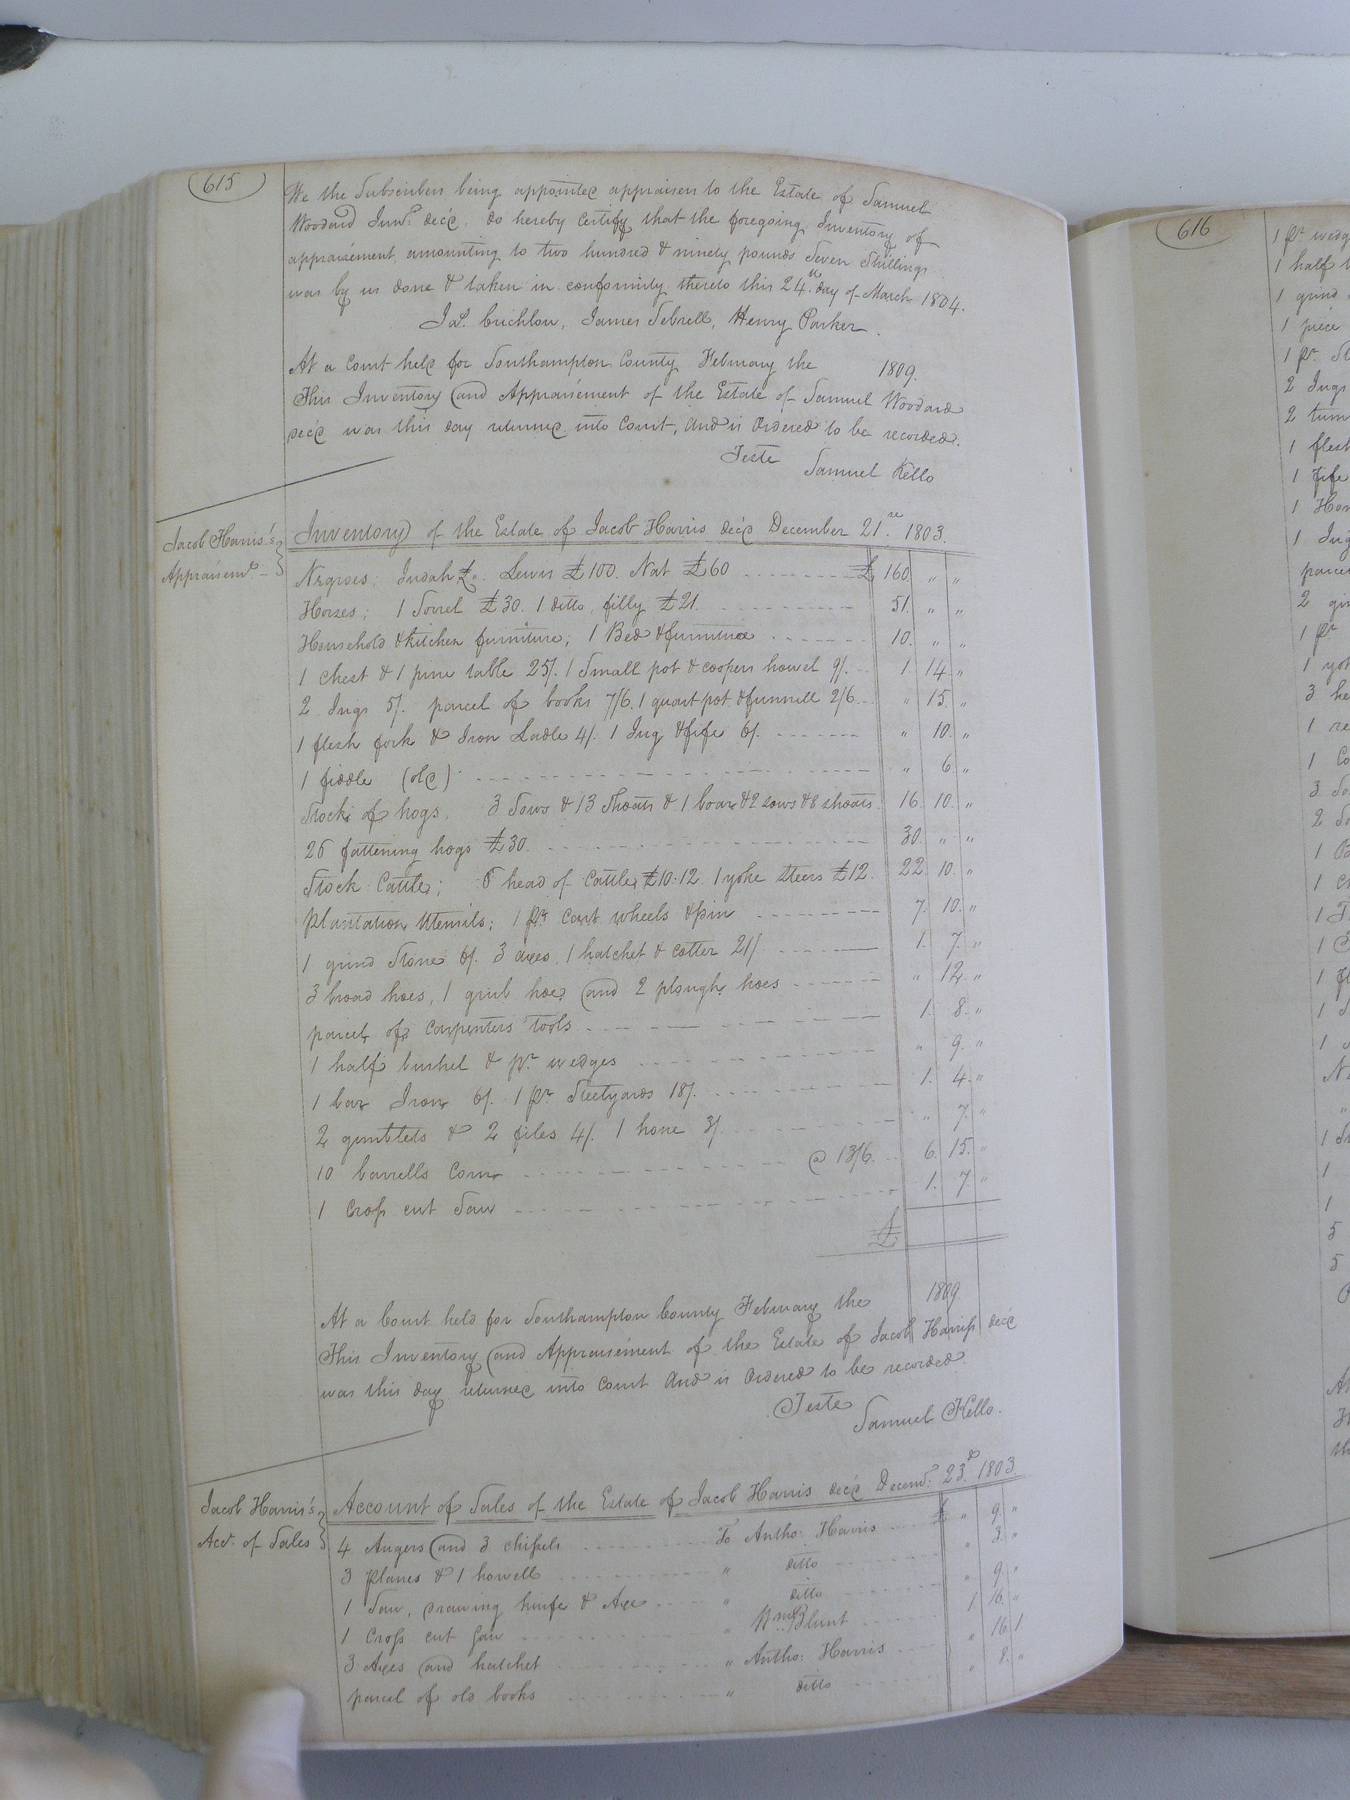 615
We the Subscribers being appointed appraisers to the Estate of Samuel
Woodard Junr. dec'd. do hereby certify that the foregoing Inventory of
appraisement, amounting to two hundred & ninety pounds Seven Shillings
was by us done & taken in conformity thereto this 24th. day of March 1804.
Jas. Crichlow, James Sebrell, Henry Parker.
At a Court held for Southampton County February the 1809.
This Inventory and Appraisement of the Estate of Samuel Woodard
dec'd was this day returned into Court, and is Ordered to be recorded.
Teste Samuel Kello
Jacob Harris's
Appraisemt.
Inventory of the Estate of Jacob Harris dec'd December 21st. 1803.
Negroes; Judah £0. Lewis £100. Nat £60 £ 160. " "
Horses; 1 Sorrel £30. 1 ditto, filly £21. 51. " "
Household & kitchen furniture; 1 Bed & furniture 10. " "
1 chest & 1 pine table 25/. 1 Small pot & coopers howel 9/. 1. 14. "
2 Jugs 5/. parcel of books 7/6. 1 quart pot & funnell 2/6. " 15. "
1 flesh fork & Iron Ladle 4/. 1 Jug & fife 6/. " 10. "
1 fiddle (old) " 6. "
Stock of hogs, 3 Sows & 13 Shoats & 1 boar & 2 sows & 8 shoats 16. 10. "
26 fattening hogs £30. 30. " "
Stock Cattle; 6 head of Cattle £10.12. 1 yoke Steers £12. 22. 10. "
Plantation Utensils; 1 pr. cart wheels & pin 7. 10. "
1 grind Stone 6/. 3 axes, 1 hatchet & cotter 21/. 1. 7. "
3 broad hoes, 1 grub hoe and 2 plough hoes " 12. "
parcel of Carpenters Tools 1. 8. "
1 half bushel & pr. wedges " 9. "
1 bar Iron 6/. 1 pr Steelyards 18/. 1. 4. "
2 gimblets & 2 files 4/. 1 hone 3/. " 7. "
10 barrells Corn @ 13/6. 6. 15. "
1 Cross cut Saw 1. 7. "
£
At a Court held for Southampton County February the 1809.
This Inventory and Appraisement of the Estate of Jacob Harriss dec'd
was this day returned into Court And is Ordered to be recorded.
Teste
Samuel Kello.
Jacob Harris's
Acct. of Sales
Account of Sales of the Estate of Jacob Harris dec'd Decemr. 23d. 1803
4 Augers and 3 chissels To Antho: Harris £ " 9. "
3 Planes & 1 howell " ditto " 3. "
1 Saw, drawing knife & Axe " ditto " 9. "
1 Cross cut Saw " Wm. Blunt 1 16. "
3 Axes and hatchet " Antho: Harris " 16. 1
parcel of old books " ditto " 8. "
616
1 pr wedg
1 half
1 grind
1 piece
1 pr.
2 Jugs
2
1 flesh
1 fife
1
1 Jug
parcel
2
1 pr
1
3
1
1
3
2
1
1
1
1
1
1
1
1
1
1
5
5